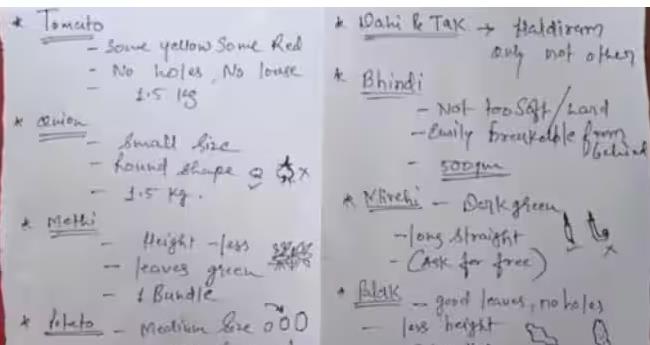 * Tomato
- Some yellow Some Red
- No holes, No loose
- 1.5 kg
* Onion
- Small Size
- Round shape
- 1.5 kg.
* Methi
- Height - less
- leaves green
- 1 Bundle
* Potato - Medium Size
* Dahi & Tak → Haldiram
only not other
* Bhindi
- Not too Soft / hard
- Easily breakable from
behind
- 500gm
* Mirchi - Dark green
- long straight
- (Ask for free)
* Palak - good leaves, no holes
- less height